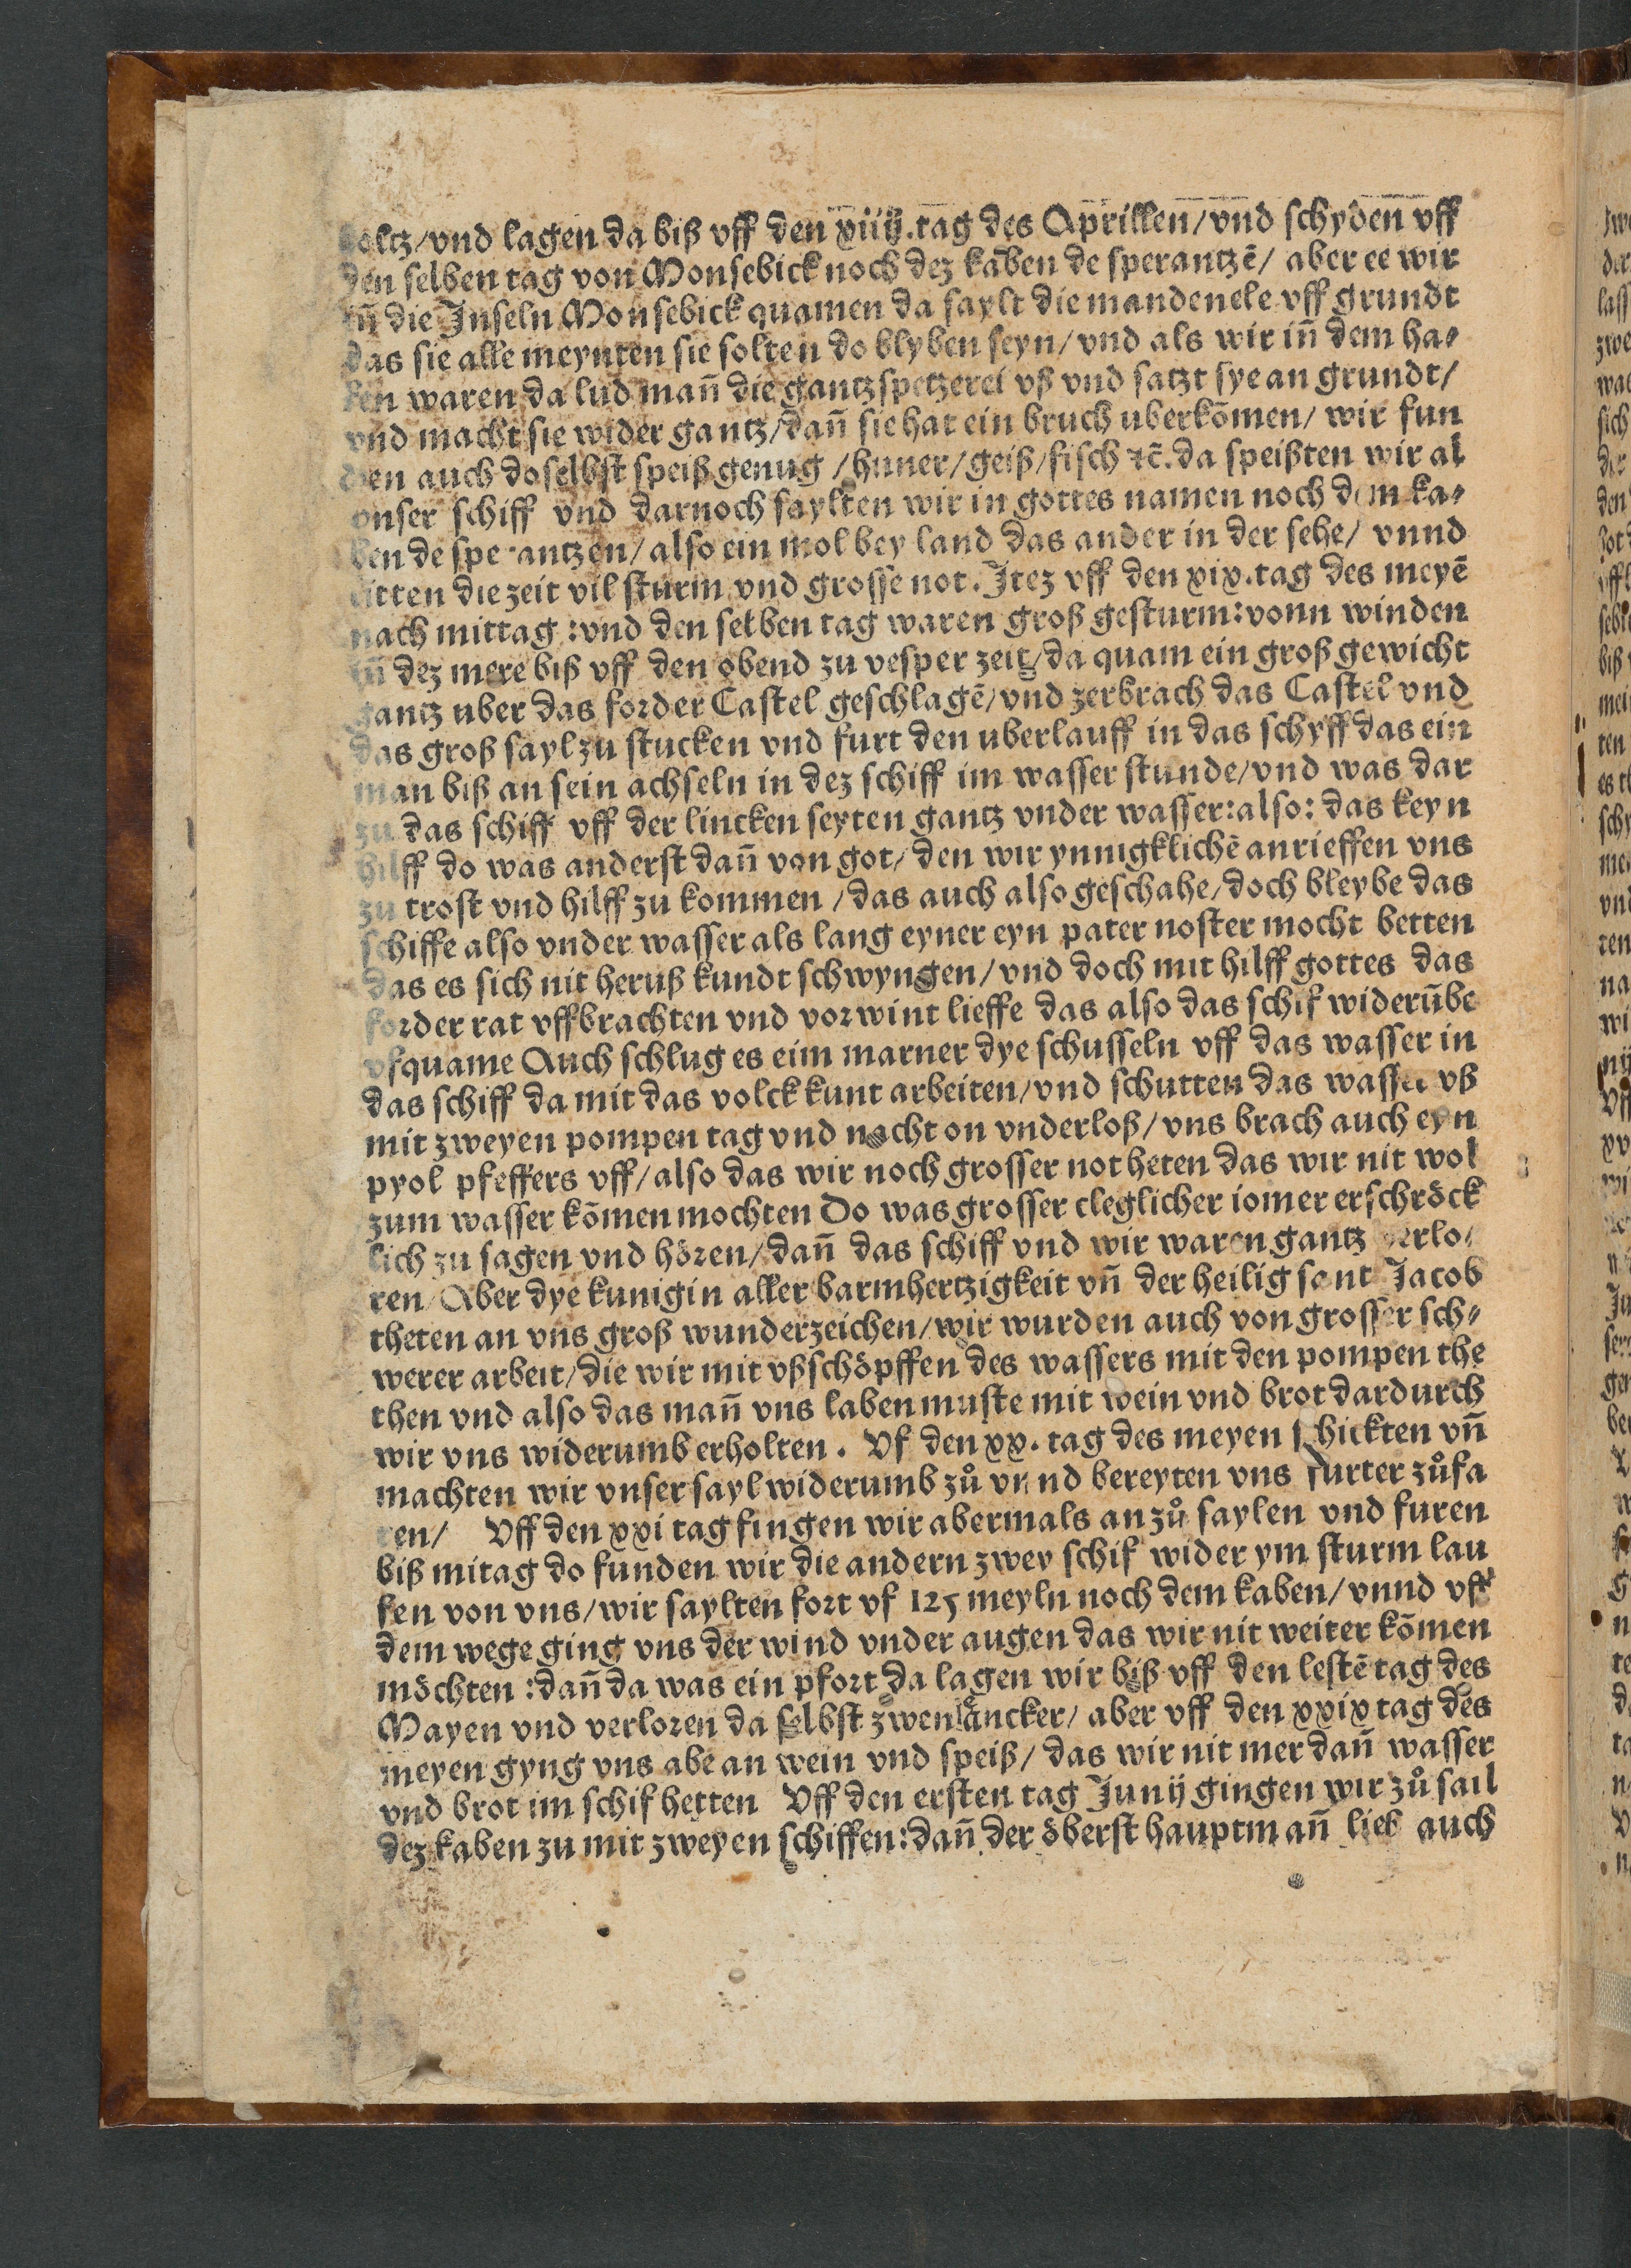 holtz/vnd lagen da biß vff den xiiij.tag des Aprillen/vnd schyden vff
den selben tag von Monsebick noch dez kaben de sperantzē/ aber ee wir
iñ die Inseln Monsebick quamen da saylt die mandenele vff grundt
das sie alle meynten sie solten do blyben seyn/ vnd als wir iñ dem ha⸗
ben waren da lud mañ die gantz spetzerei vß vnd satzt sye an grundt/
vnd macht sie wider gantz/dañ sie hat ein bruch uberkōmen/ wir fun
den auch doselbst speiß genug /huner/geiß/fisch ⁊c̄.da speißten wir al
vnser schiff vnd darnoch saylten wir in gottes namen noch dem ka⸗
ben de sperantzen/ also ein mol bey land das ander in der sehe/ vnnd
litten die zeit vil sturm vnd grosse not. Itez vff den xix.tag des meyē
nach mittag:vnd den selben tag waren groß gesturm:vonn winden
iñ dez mere biß vff den obend zu vesper zeit/da quam ein groß gewicht
gantz uber das forder Castel geschlagē/vnd zerbrach das Castel vnd
das groß sayl zu stucken vnd furt den uberlauff in das schyff das ein
man biß an sein achseln in dez schiff im wasser stunde/vnd was dar
zu das schiff vff der lincken seyten gantz vnder wasser:also: das keyn
hilff do was anderst dañ von got/ den wir ynnigklichē anrieffen vns
zu trost vnd hilff zu kommen /das auch also geschahe/doch bleybe das
schiffe also vnder wasser als lang eyner eyn pater noster mocht betten
das es sich nit heruß kundt schwyngen/vnd doch mit hilff gottes das
forder rat vffbrachten vnd vorwint lieffe das also das schif widerūbe
vfquame Auch schlug es eim marner dye schusseln vff das wasser in
das schiff da mit das volck kunt arbeiten/vnd schutten das wasser vß
mit zweyen pompen tag vnd nacht on vnderloß/vns brach auch eyn
pyol pfeffers vff/also das wir noch grosser not heten das wir nit wol
zum wasser kōmen mochten Do was grosser cleglicher iomer erschröck
lich zu sagen vnd hören/dañ das schiff vnd wir waren gantz verlo⸗
ren/Aber dye kunigin aller barmhertzigkeit vñ der heilig sant Jacob
theten an vns groß wunderzeichen/wir wurden auch von grosser sch⸗
werer arbeit/die wir mit vßschöpffen des wassers mit den pompen the
then vnd also das mañ vns laben muste mit wein vnd brot dardurch
wir vns widerumb erholten. Vf den xx.tag des meyen schickten vñ
machten wir vnser sayl widerumb zů vnnd bereyten vns furter zůfa
ren/ Vff den xxi tag fingen wir abermals an zů saylen vnd furen
biß mitag do funden wir die andern zwey schif wider ym sturm lau
fen von vns/wir saylten fort vf 125 meyln noch dem kaben/vnnd vff
dem wege ging vns der wind vnder augen das wir nit weiter kōmen
möchten :dañ da was ein pfort da lagen wir biß vff den lestē tag des
Mayen vnd verloren da selbst zwen åncker/ aber vff den xxix tag des
meyen gyng vns abe an wein vnd speiß/ das wir nit mer dañ wasser
vnd brot im schif hetten Vff den ersten tag Junij gingen wir zů sail
dez kaben zu mit zweyen schiffen:dañ der öberst hauptmañ lieb auch